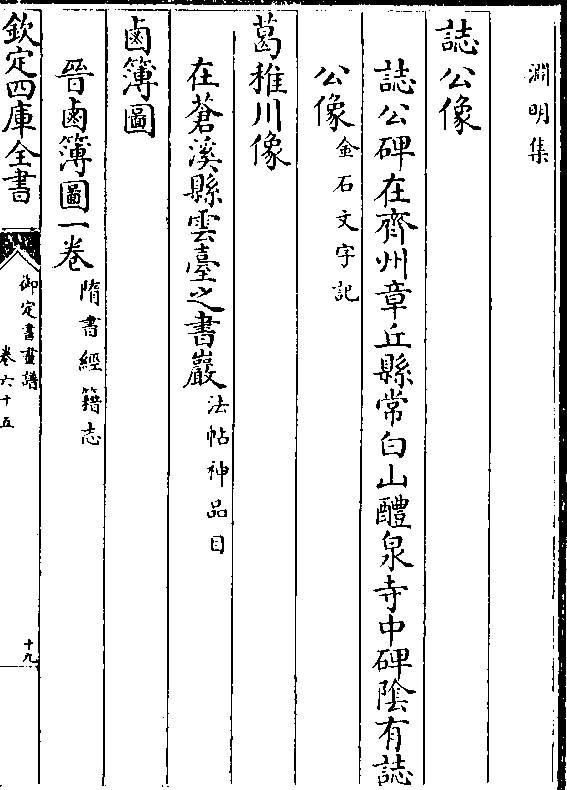 淵明集
誌公像
誌公碑在齊州章丘縣常白山醴泉寺中碑隂有誌
公像金石文字記
葛稚川像
在蒼溪縣雲臺之書巖法帖神品目
鹵簿圖
晉鹵簿圖一卷隋書經籍志
欽定四庫全書
御定書畫譜
卷六十五
十九